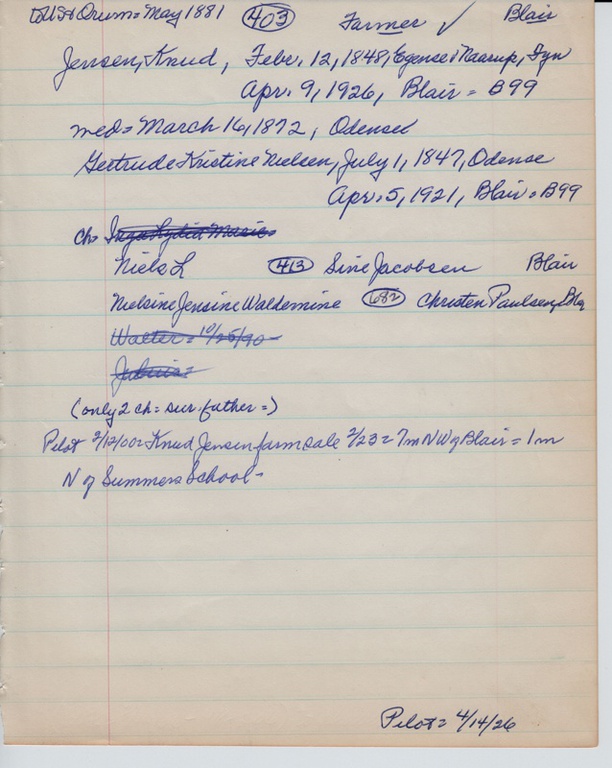 to US & Orum = May 1881 403 Farmer ✓ Blair
Jensen, Knud, Febr. 12, 1848, Egense i Naarup, Fyn
Apr. 9, 1926, Blair = B99
med = March 16, 1872, Odense
Gertrude Kristine Nielsen, July 1, 1847, Odense
Apr. 5, 1921, Blair = B99
ch = Inga Lydia Marie =
Niels L 413 Sine Jacobsen Blair
Nielsine Jensine Waldemine 682 Christen Paulsen, Blair
Walter = 10/25/90
Julius =
(only 2 ch = sur. father =)
Pilot 2/12/00 = Knud Jensen farm sale 2/23 = 7m NW of Blair = 1m
N of Summers School =
Pilot = 4/14/26